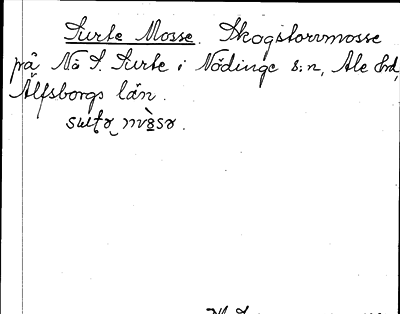 Surte Mosse. Skogstorvmosse
på Nä S. Surte i Nödinge s:n, Ale hd,
Älfsborgs län.